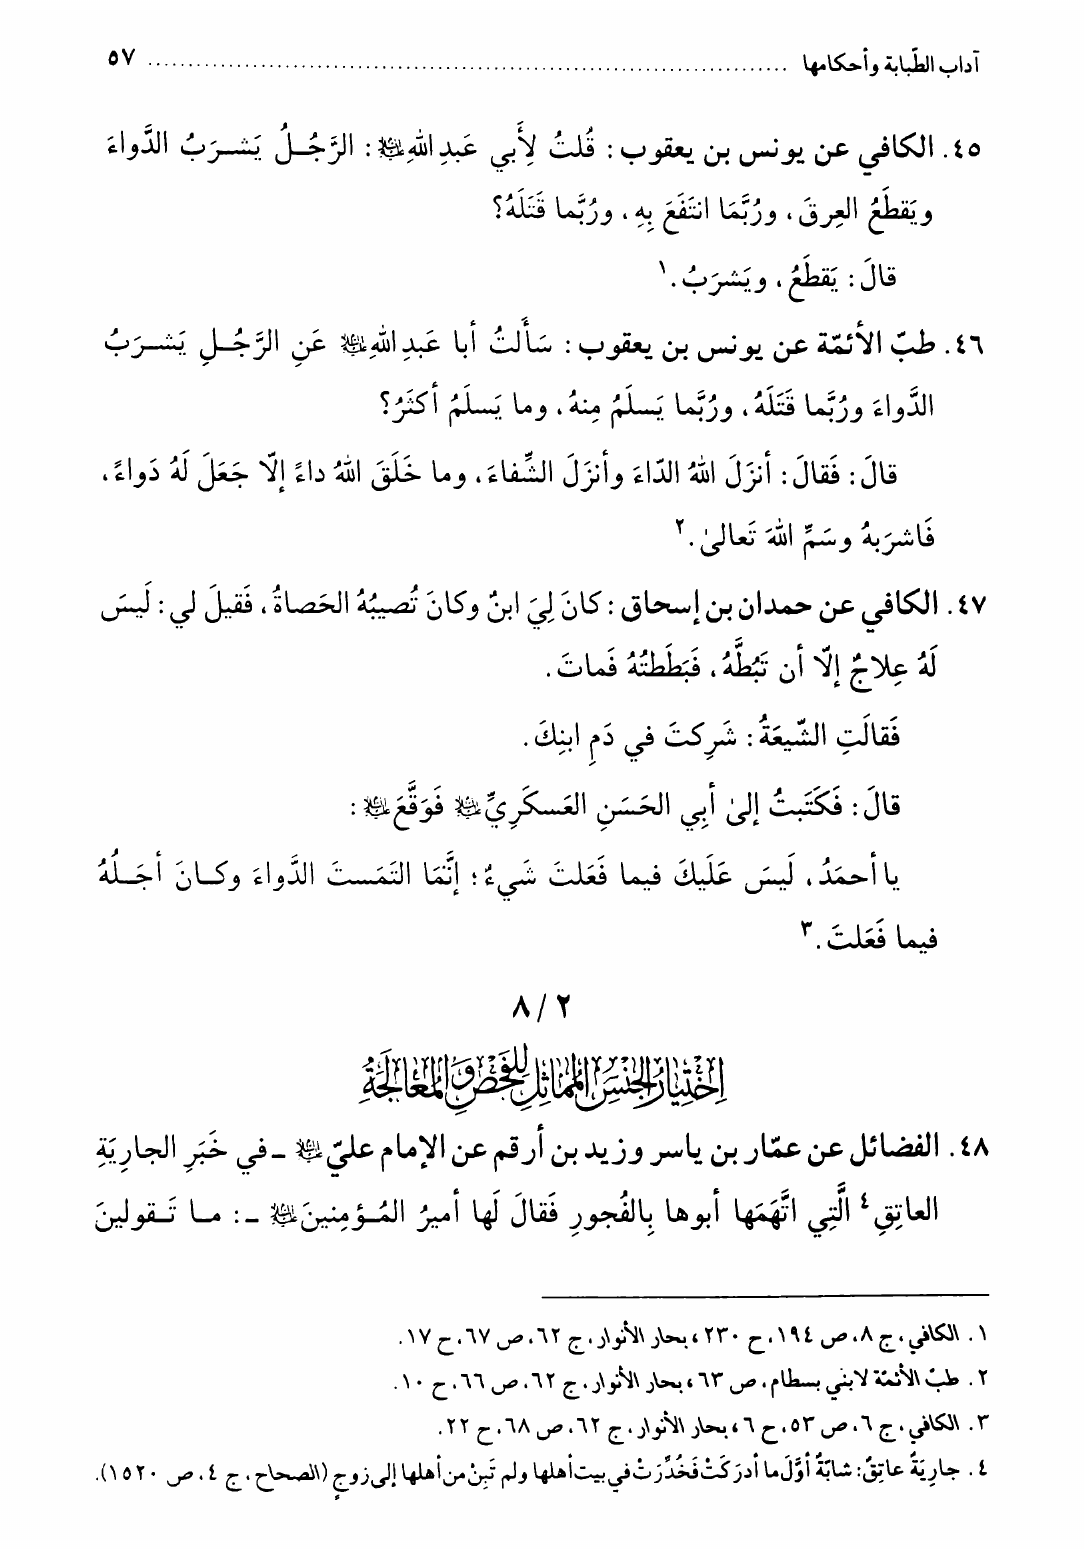 آداب الطّبابة وأحكامها ........................................ ٥٧
٤٥. الكافي عن يونس بن يعقوب: قُلتُ لِأَبي عَبدِ اللهِ ؑ: الرَّجُلُ يَشـرَبُ الدَّواءَ
ويَقطَعُ العِرقَ، ورُبَّمَا انتَفَعَ بِهِ، ورُبَّما قَتَلَهُ؟
قالَ: يَقطَعُ، ويَشرَبُ.١
٤٦. طبّ الأئمّة عن يونس بن يعقوب: سَأَلتُ أبا عَبدِ اللهِ ؑ عَنِ الرَّجُـلِ يَشـرَبُ
الدَّواءَ ورُبَّما قَتَلَهُ، ورُبَّما يَسلَمُ مِنهُ، وما يَسلَمُ أكثَرُ؟
قالَ: فَقالَ: أنزَلَ اللهُ الدّاءَ وأنزَلَ الشِّفاءَ، وما خَلَقَ اللهُ داءً إلّا جَعَلَ لَهُ دَواءً،
فَاشرَبهُ وسَمِّ اللهَ تَعالىٰ.٢
٤٧. الكافي عن حمدان بن إسحاق: كانَ لِيَ ابنٌ وكانَ تُصيبُهُ الحَصاةُ، فَقيلَ لي: لَيسَ
لَهُ عِلاجٌ إلّا أن تَبُطَّهُ، فَبَطَطتُهُ فَماتَ.
فَقالَتِ الشّيعَةُ: شَرِكتَ في دَمِ ابنِكَ.
قالَ: فَكَتَبتُ إلىٰ أبِي الحَسَنِ العَسكَرِيِّ ؑ فَوَقَّعَ ؑ:
يا أحمَدُ، لَيسَ عَلَيكَ فيما فَعَلتَ شَيءٌ؛ إنَّمَا التَمَستَ الدَّواءَ وكـانَ أجَـلُهُ
فيما فَعَلتَ.٣
٢ / ٨
اِختِيارُ الجِنسِ المُماثِلِ لِلفَحصِ وَالمُعالَجَةِ
٤٨. الفضائل عن عمّار بن ياسر وزيد بن أرقم عن الإمام عليّ ؑ ـ في خَبَرِ الجارِيَةِ
العاتِقِ٤ الَّتِي اتَّهَمَها أبوها بِالفُجورِ فَقالَ لَها أميرُ المُـؤمِنينَ ؑ ـ: مـا تَـقولينَ
١. الكافي، ج ٨، ص ١٩٤، ح ٢٣٠؛ بحار الأنوار، ج ٦٢، ص ٦٧، ح ١٧.
٢. طبّ الأئمّة لابني بسطام، ص ٦٣؛ بحار الأنوار، ج ٦٢، ص ٦٦، ح ١٠.
٣. الكافي، ج ٦، ص ٥٣، ح ٦؛ بحار الأنوار، ج ٦٢، ص ٦٨، ح ٢٢.
٤. جارِيَةٌ عاتِقٌ: شابّةٌ أوَّلَ ما أدرَكَتْ فَخُدِّرَتْ في بيت أهلها ولم تَبِنْ من أهلها إلى زوجٍ (الصحاح، ج ٤، ص ١٥٢٠).